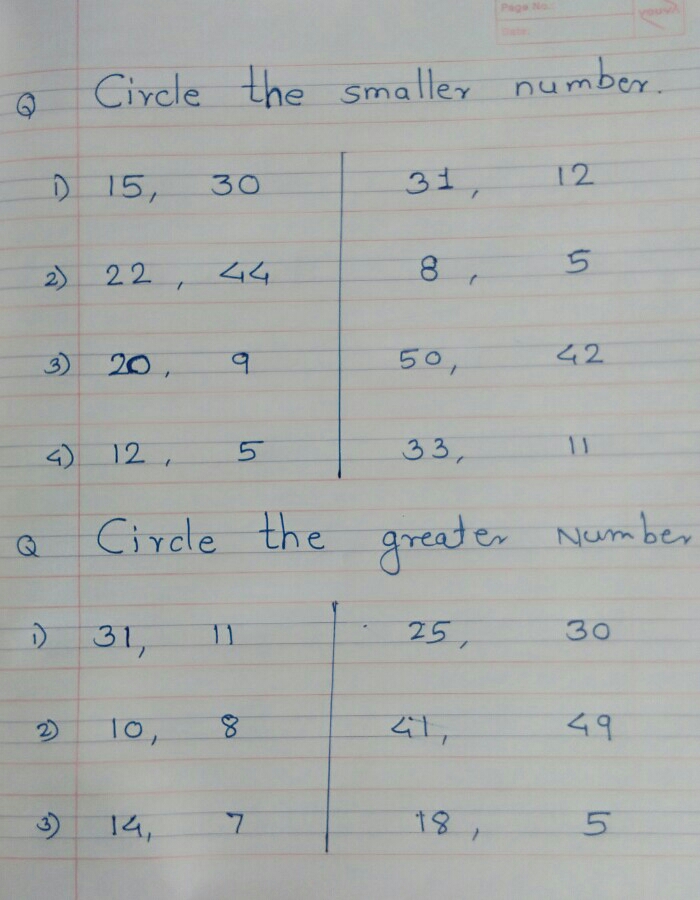 Page No.:
Date:
youva
Q Circle the smaller number.
1) 15, 30 31, 12
2) 22, 44 8, 5
3) 20, 9 50, 42
4) 12, 5 33, 11
Q Circle the greater Number
1) 31, 11 25, 30
2) 10, 8 41, 49
3) 14, 7 18, 5